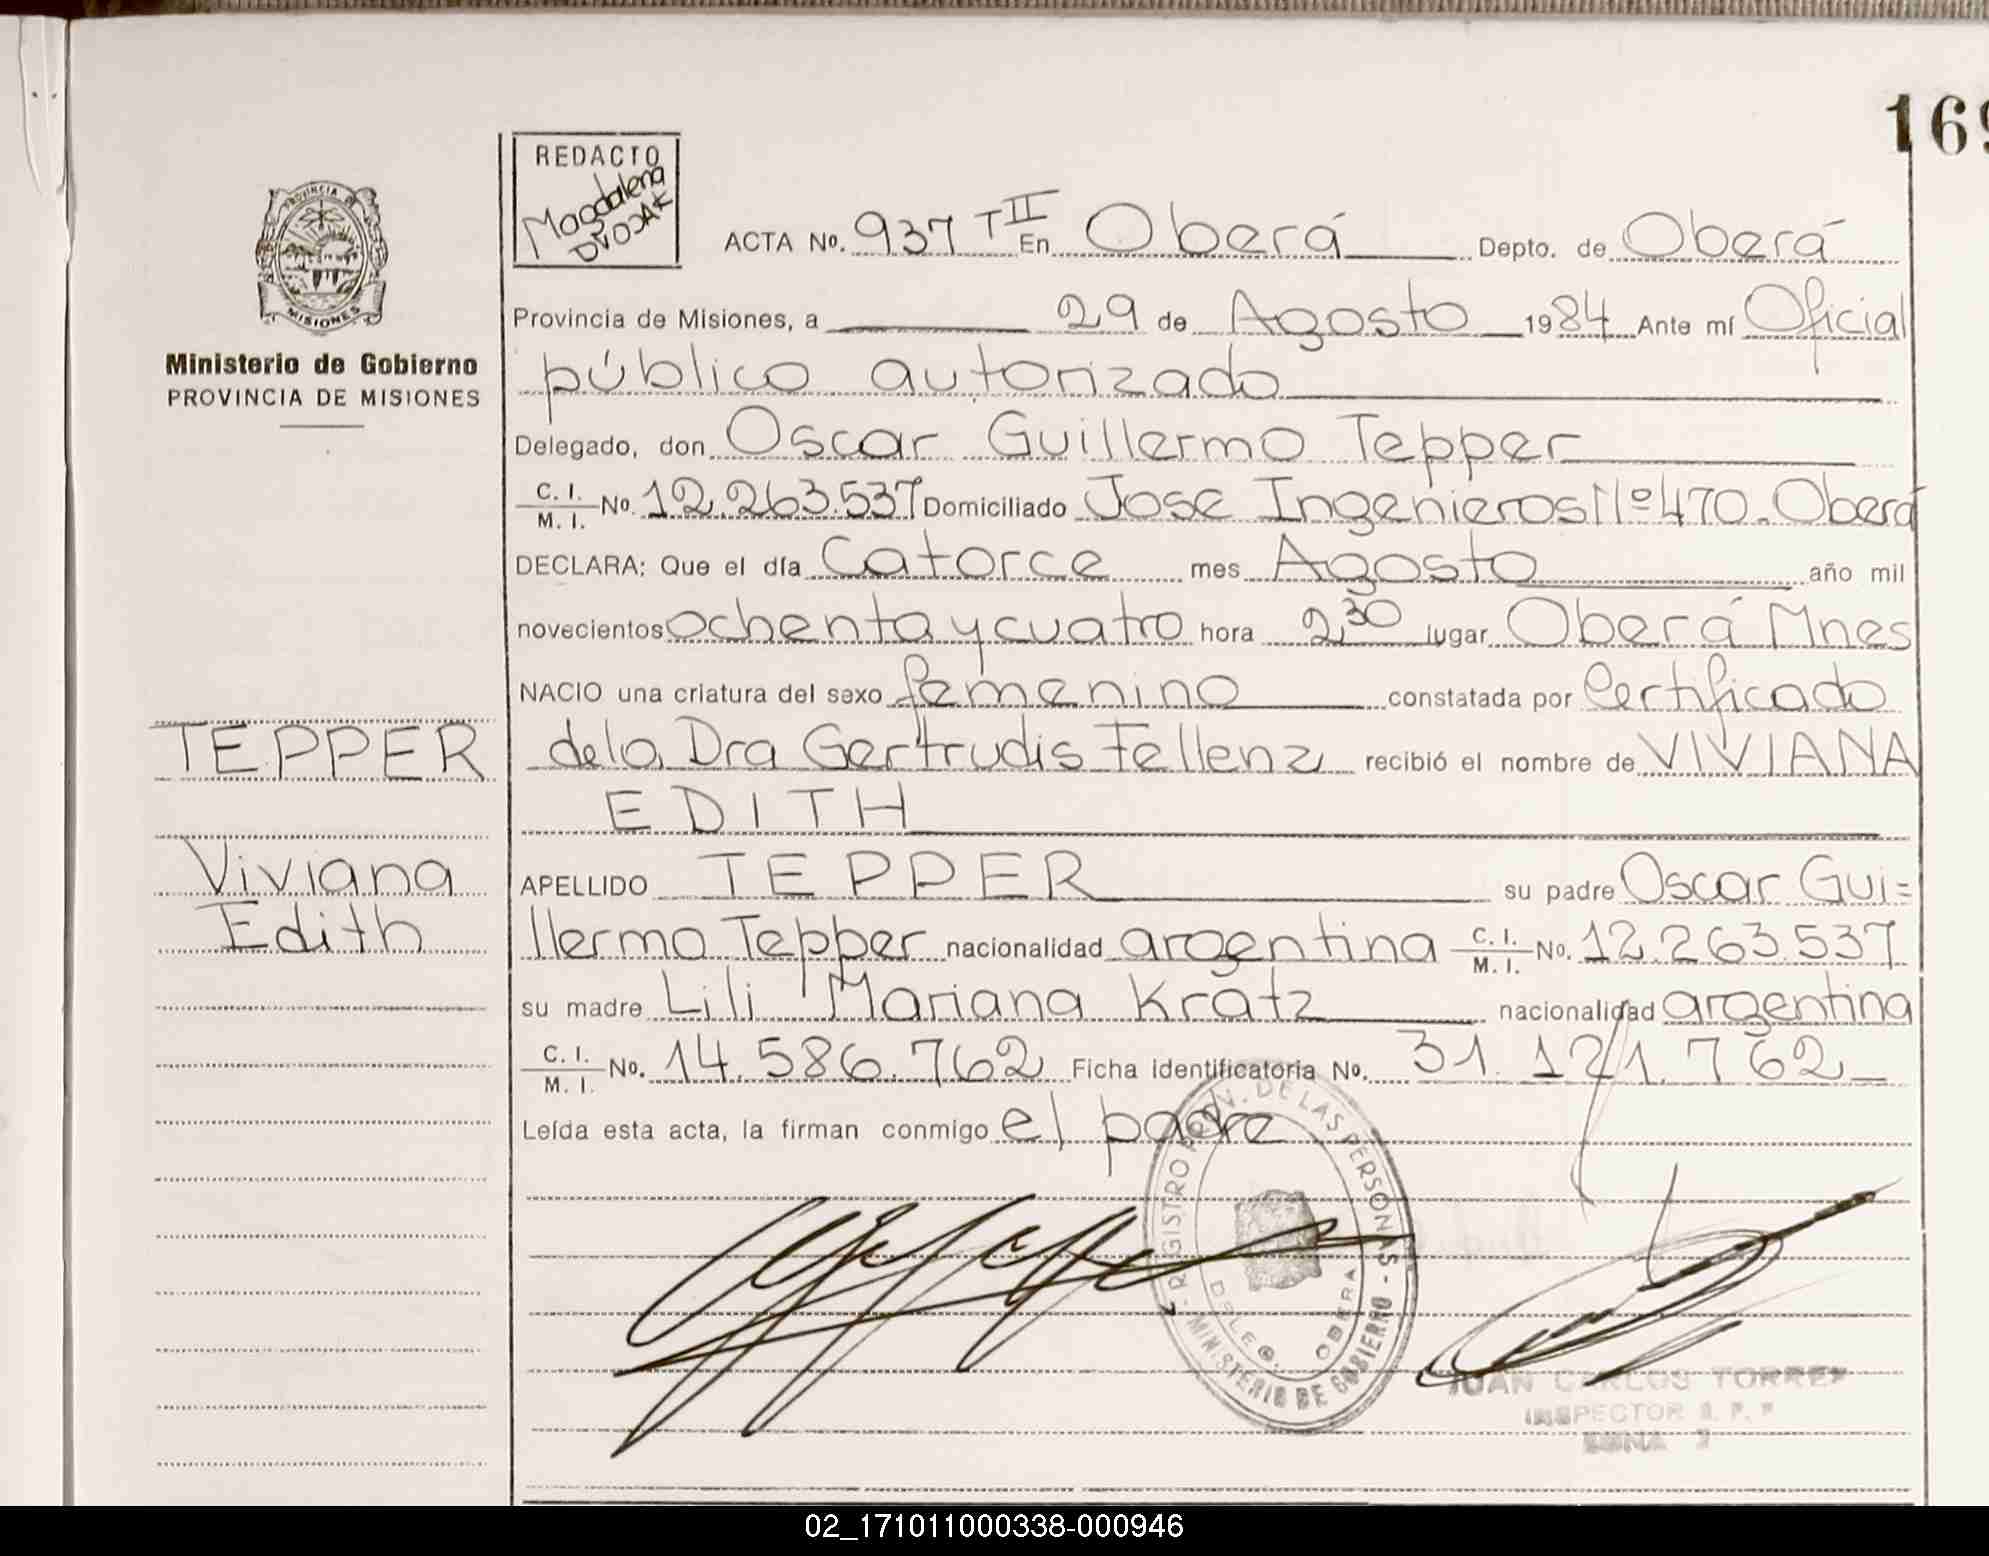 169
REDACTO
Magdalena
DVOJAK
ACTA No. 937 T II En Oberá Depto. de Oberá
PROVINCIA
MISIONES
Provincia de Misiones, a 29 de Agosto 1984 Ante mí Oficial
Ministerio de Gobierno
PROVINCIA DE MISIONES
público autorizado
Delegado, don Oscar Guillermo Tepper
C. I. M. I. No. 12.263.537 Domiciliado Jose Ingenieros Nº 470. Oberá
DECLARA: Que el día Catorce mes Agosto año mil
novecientos ochenta y cuatro hora 2,30 lugar Oberá Mnes
NACIO una criatura del sexo femenino constatada por Certificado
TEPPER
de la Dra Gertrudis Fellenz recibió el nombre de VIVIANA
EDITH
Viviana
Edith
APELLIDO TEPPER su padre Oscar Gui=
llermo Tepper nacionalidad argentina C. I. M. I. No. 12.263.537
su madre Lili Mariana Kratz nacionalidad argentina
C. I. M. I. No. 14.586.762 Ficha identificatoria No. 31.121.762
Leída esta acta, la firman conmigo el padre
REGISTRO PROV. DE LAS PERSONAS - MINISTERIO DE GOBIERNO
OBERA
JUAN CARLOS TORRES
INSPECTOR
ZONA
02_171011000338-000946